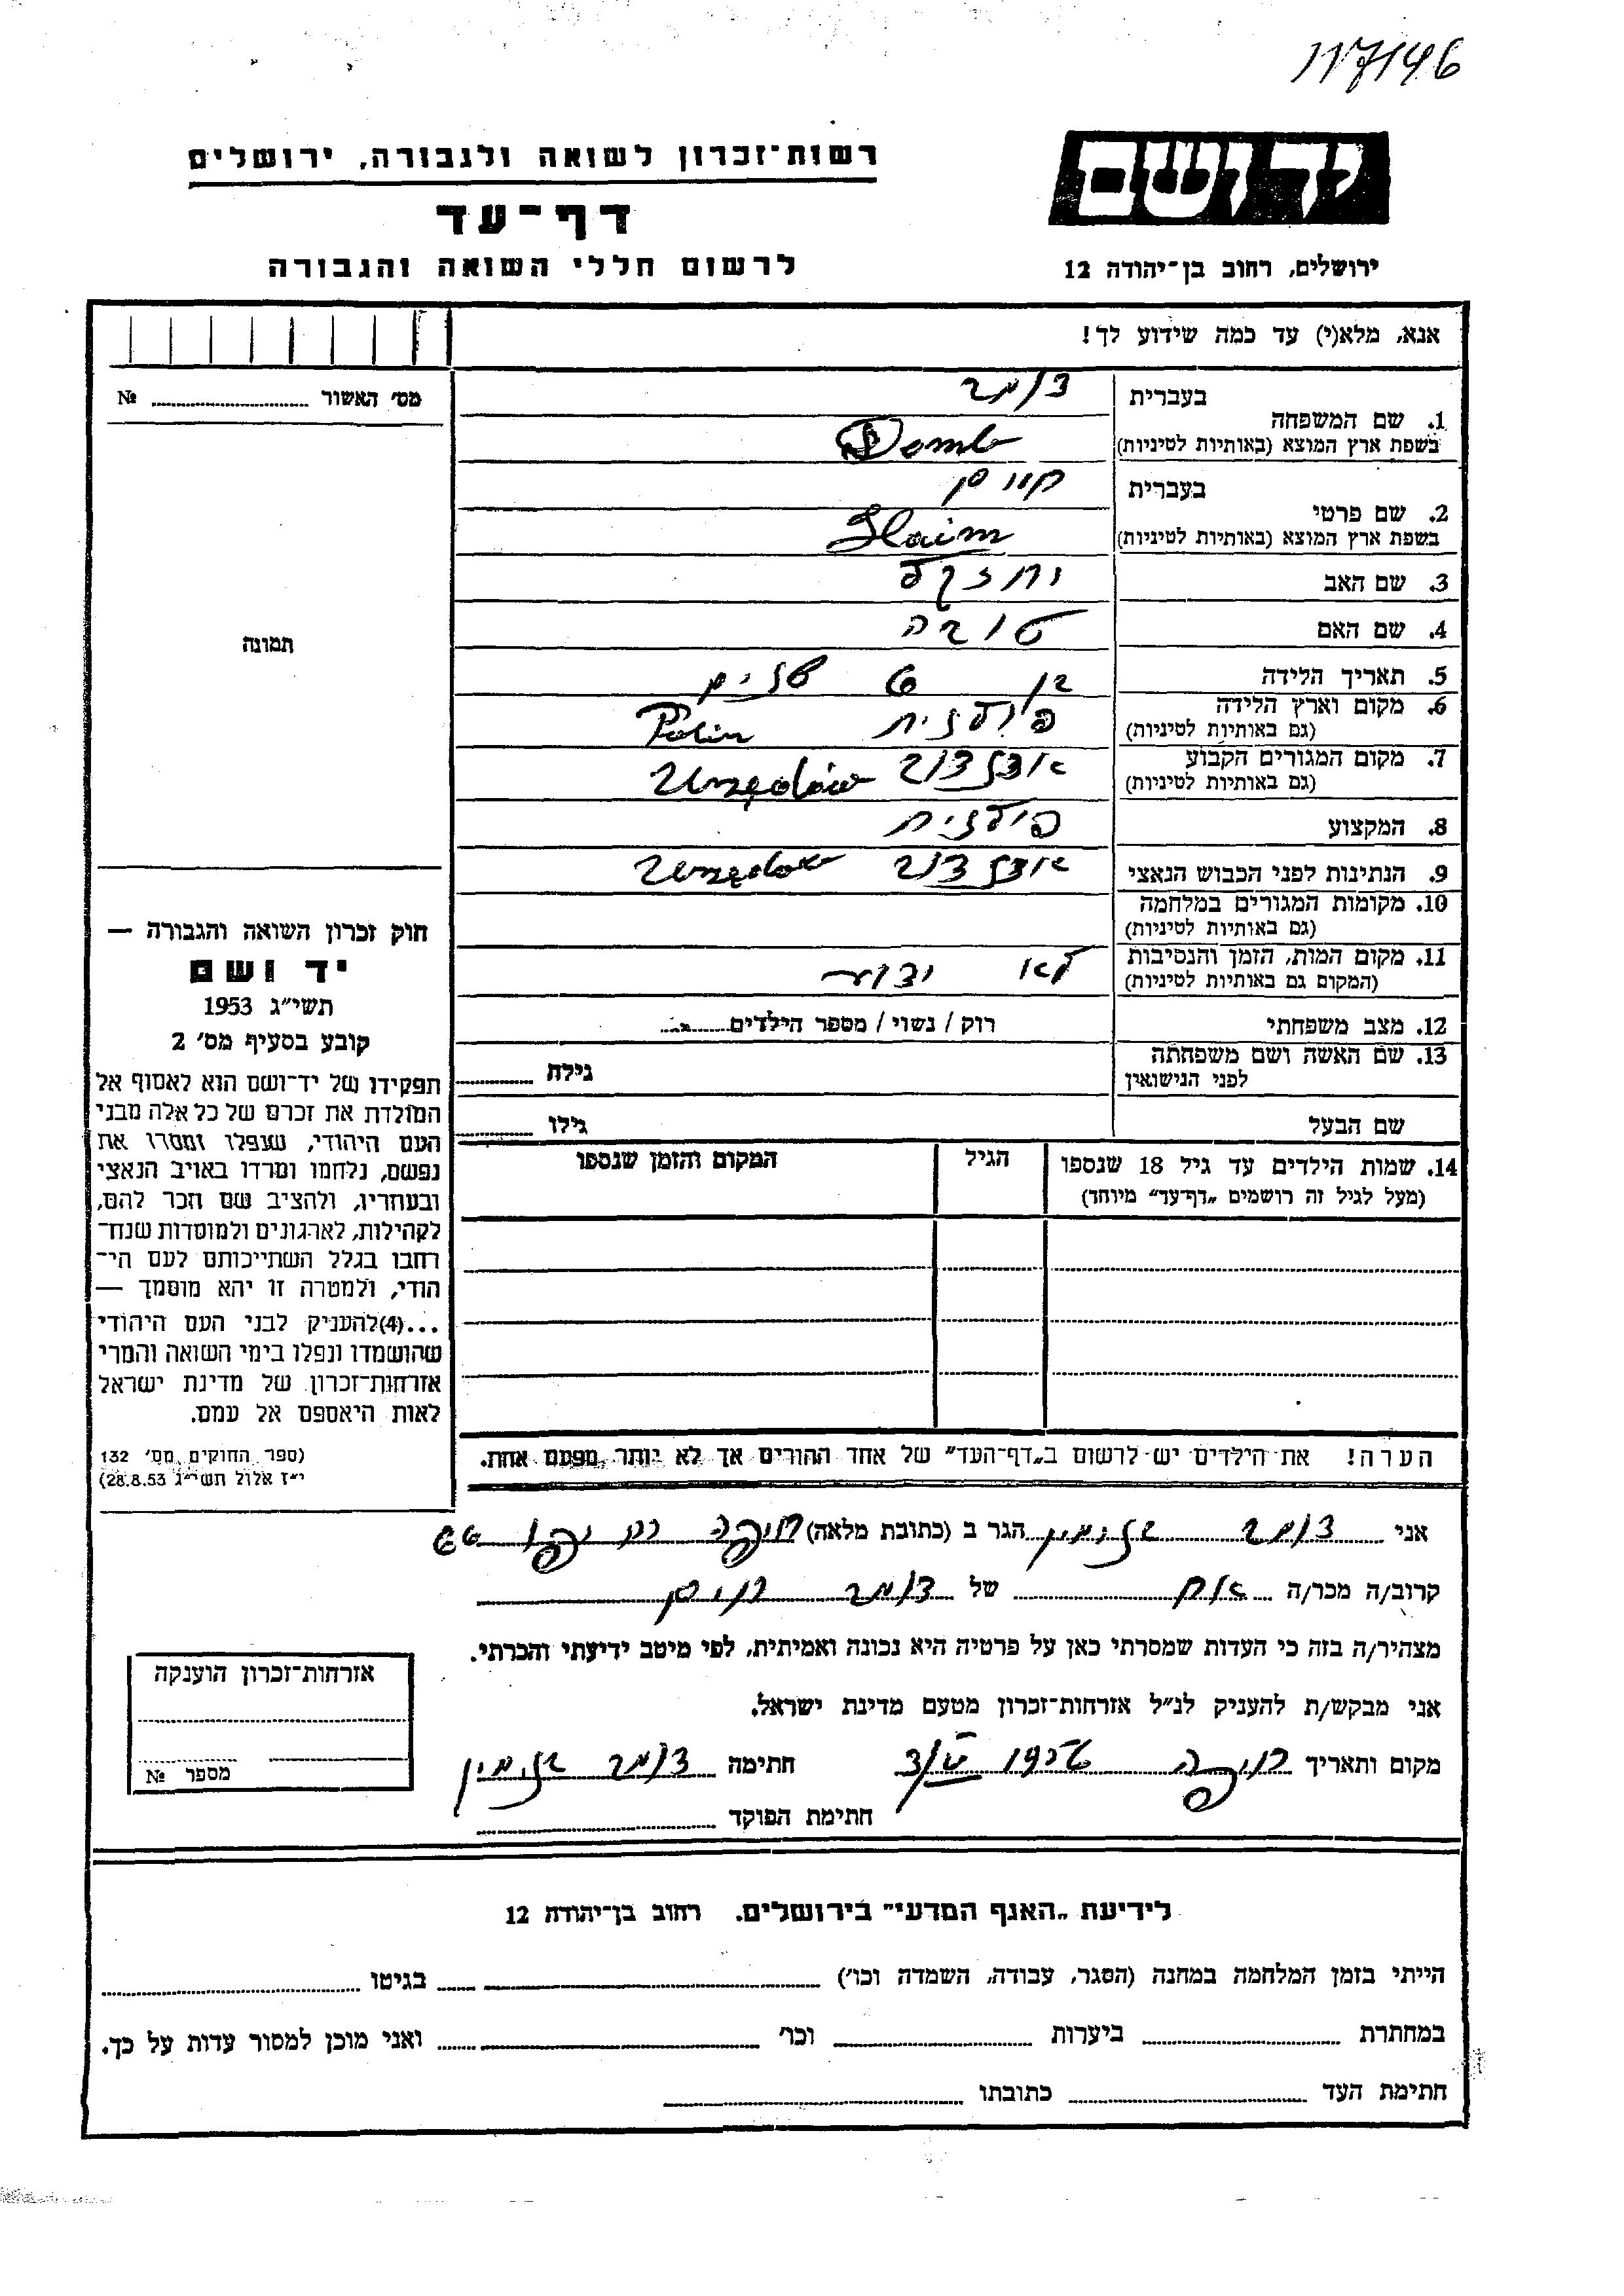 117146
רשות־זכרון לשואה ולגבורה, ירושלים
יד ושם
דף־עד
לרשום חללי השואה והגבורה
ירושלים, רחוב בן־יהודה 12
אנא, מלא(י) עד כמה שידוע לך!
מס׳ האשור № 
תמונה
1. שם המשפחה
בעברית דומב
בשפת ארץ המוצא (באותיות לטיניות) Domb
2. שם פרטי
בעברית חיים
בשפת ארץ המוצא (באותיות לטיניות) Haim
3. שם האב יחזקל
4. שם האם טובה
5. תאריך הלידה בן 6 שנים
6. מקום וארץ הלידה פולנית Polin
(גם באותיות לטיניות)
7. מקום המגורים הקבוע אוזנדוב Urzędów
(גם באותיות לטיניות)
8. המקצוע פולנית
9. הנתינות לפני הכבוש הנאצי אוזנדוב Urzędów
10. מקומות המגורים במלחמה
(גם באותיות לטיניות)
11. מקום המות, הזמן והנסיבות לא ידוע
(המקום גם באותיות לטיניות)
12. מצב משפחתי רוק / נשוי / מספר הילדים
13. שם האשה ושם משפחתה
לפני הנישואין גילה
שם הבעל גילו
14. שמות הילדים עד גיל 18 שנספו הגיל המקום והזמן שנספו
(מעל לגיל זה רושמים „דף־עד״ מיוחד)
חוק זכרון השואה והגבורה —
יד ושם
תשי״ג 1953
קובע בסעיף מס׳ 2
תפקידו של יד־ושם הוא לאסוף אל
המולדת את זכרם של כל אלה מבני
העם היהודי, שנפלו ומסרו את
נפשם, נלחמו ומרדו באויב הנאצי
ובעוזריו, ולהציב שם וזכר להם,
לקהילות, לארגונים ולמוסדות שנח־
רחבו בגלל השתייכותם לעם הי־
הודי, ולמטרה זו יהא מוסמך —
...(4)להעניק לבני העם היהודי
שהושמדו ונפלו בימי השואה והמרי
אזרחות־זכרון של מדינת ישראל
לאות היאספם אל עמם.
(ספר החוקים מס׳ 132
י״ז אלול תשי״ג 28.8.53)
הערה! את הילדים יש לרשום ב„דף־העד״ של אחד ההורים אך לא יותר מפעם אחת.
אני דומב בנימין הגר ב (כתובת מלאה) חיפה
קרוב/ה מכר/ה אח של דומב חיים
מצהיר/ה בזה כי העדות שמסרתי כאן על פרטיה היא נכונה ואמיתית, לפי מיטב ידיעתי והכרתי.
אני מבקש/ת להעניק לנ״ל אזרחות־זכרון מטעם מדינת ישראל.
מקום ותאריך חיפה חתימה דומב בנימין
חתימת הפוקד
אזרחות־זכרון הוענקה
מספר №
לידיעת „האגף המדעי״ בירושלים. רחוב בן־יהודה 12
הייתי בזמן המלחמה במחנה (הסגר, עבודה, השמדה וכו׳) בגיטו
במחתרת ביערות וכו׳ ואני מוכן למסור עדות על כך.
חתימת העד כתובתו